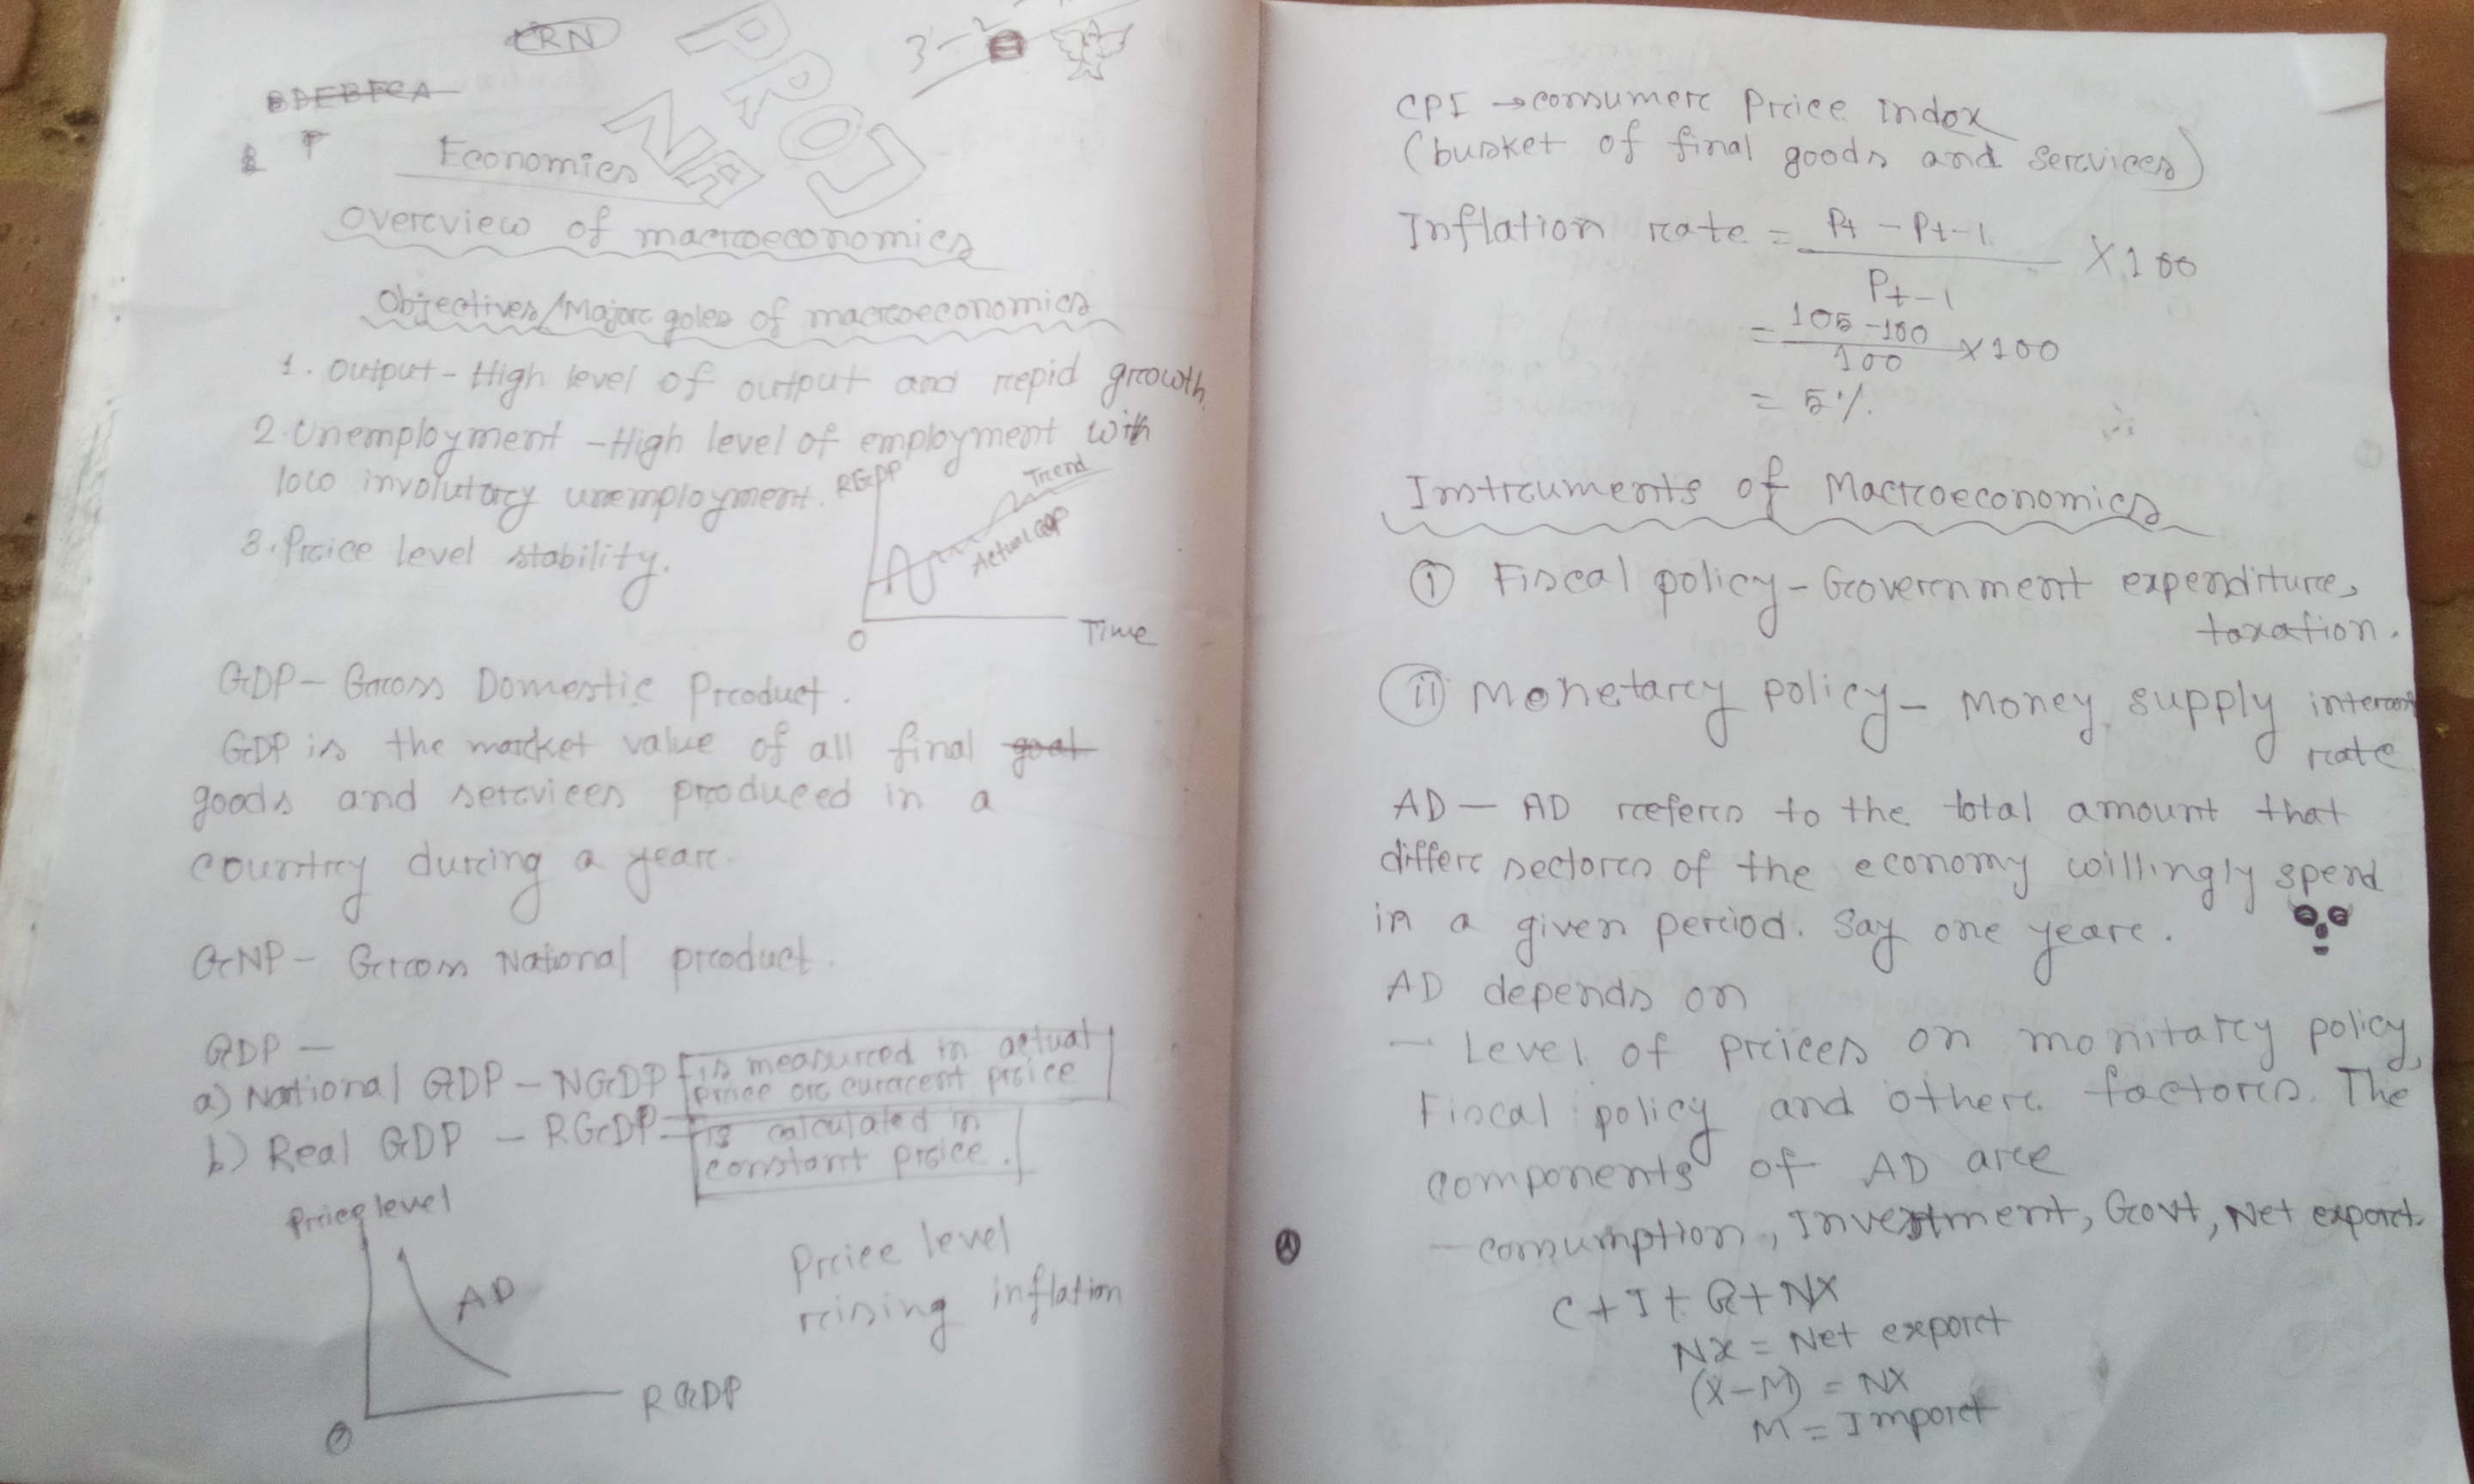 CRN
PROJ
NA
3-2
BDEBFCA
Economics
Overview of macroeconomics
Objectives/Major goles of macroeconomics
1. Output - High level of output and repid growth.
2. Unemployment - High level of employment with
low involutary unemployment.
3. Price level stability.
RGDP
Trend
Actual GDP
O
Time
GDP - Gross Domestic Product.
GDP is the market value of all final goal
goods and services produced in a
country during a year.
GNP - Gross National product.
GDP -
a) National GDP - NGDP is measured in actual
price or curacent price
b) Real GDP - RGDP - is calculated in
constant price.
Price level
AD
O
RGDP
Price level
rising inflation
CPI → consumer Price Index
(busket of final goods and services)
Inflation rate = Pt - Pt-1 / Pt-1 X 100
= 105 - 100 / 100 X 100
= 5%.
Instruments of Macroeconomics
i Fiscal policy - Government expenditure,
taxation.
ii Monetary policy - Money supply interest
rate
AD - AD refers to the total amount that
differ sectors of the economy willingly spend
in a given period. Say one year.
AD depends on
- Level of prices on monitary policy,
Fiscal policy and other factors. The
components of AD are
- consumption, Investment, Govt, Net export.
C + I + G + NX
NX = Net export
(X-M) = NX
M = Import